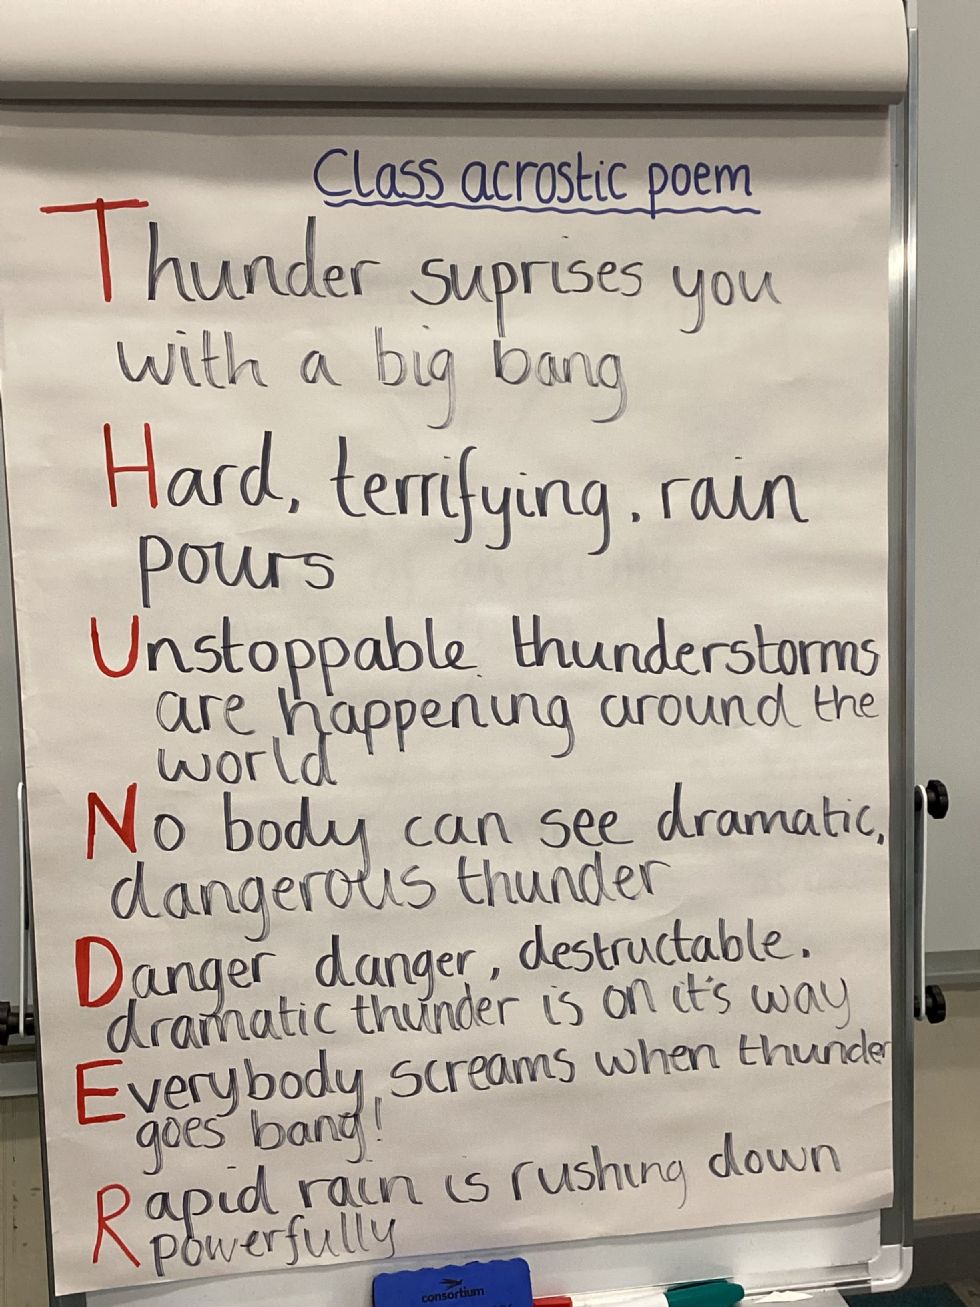 Class acrostic poem
Thunder suprises you
with a big bang
Hard, terrifying, rain
pours
Unstoppable thunderstorms
are happening around the
world
No body can see dramatic,
dangerous thunder
Danger danger, destructable.
dramatic thunder is on it's way
Everybody screams when thunder
goes bang!
Rapid rain is rushing down
powerfully
consortium